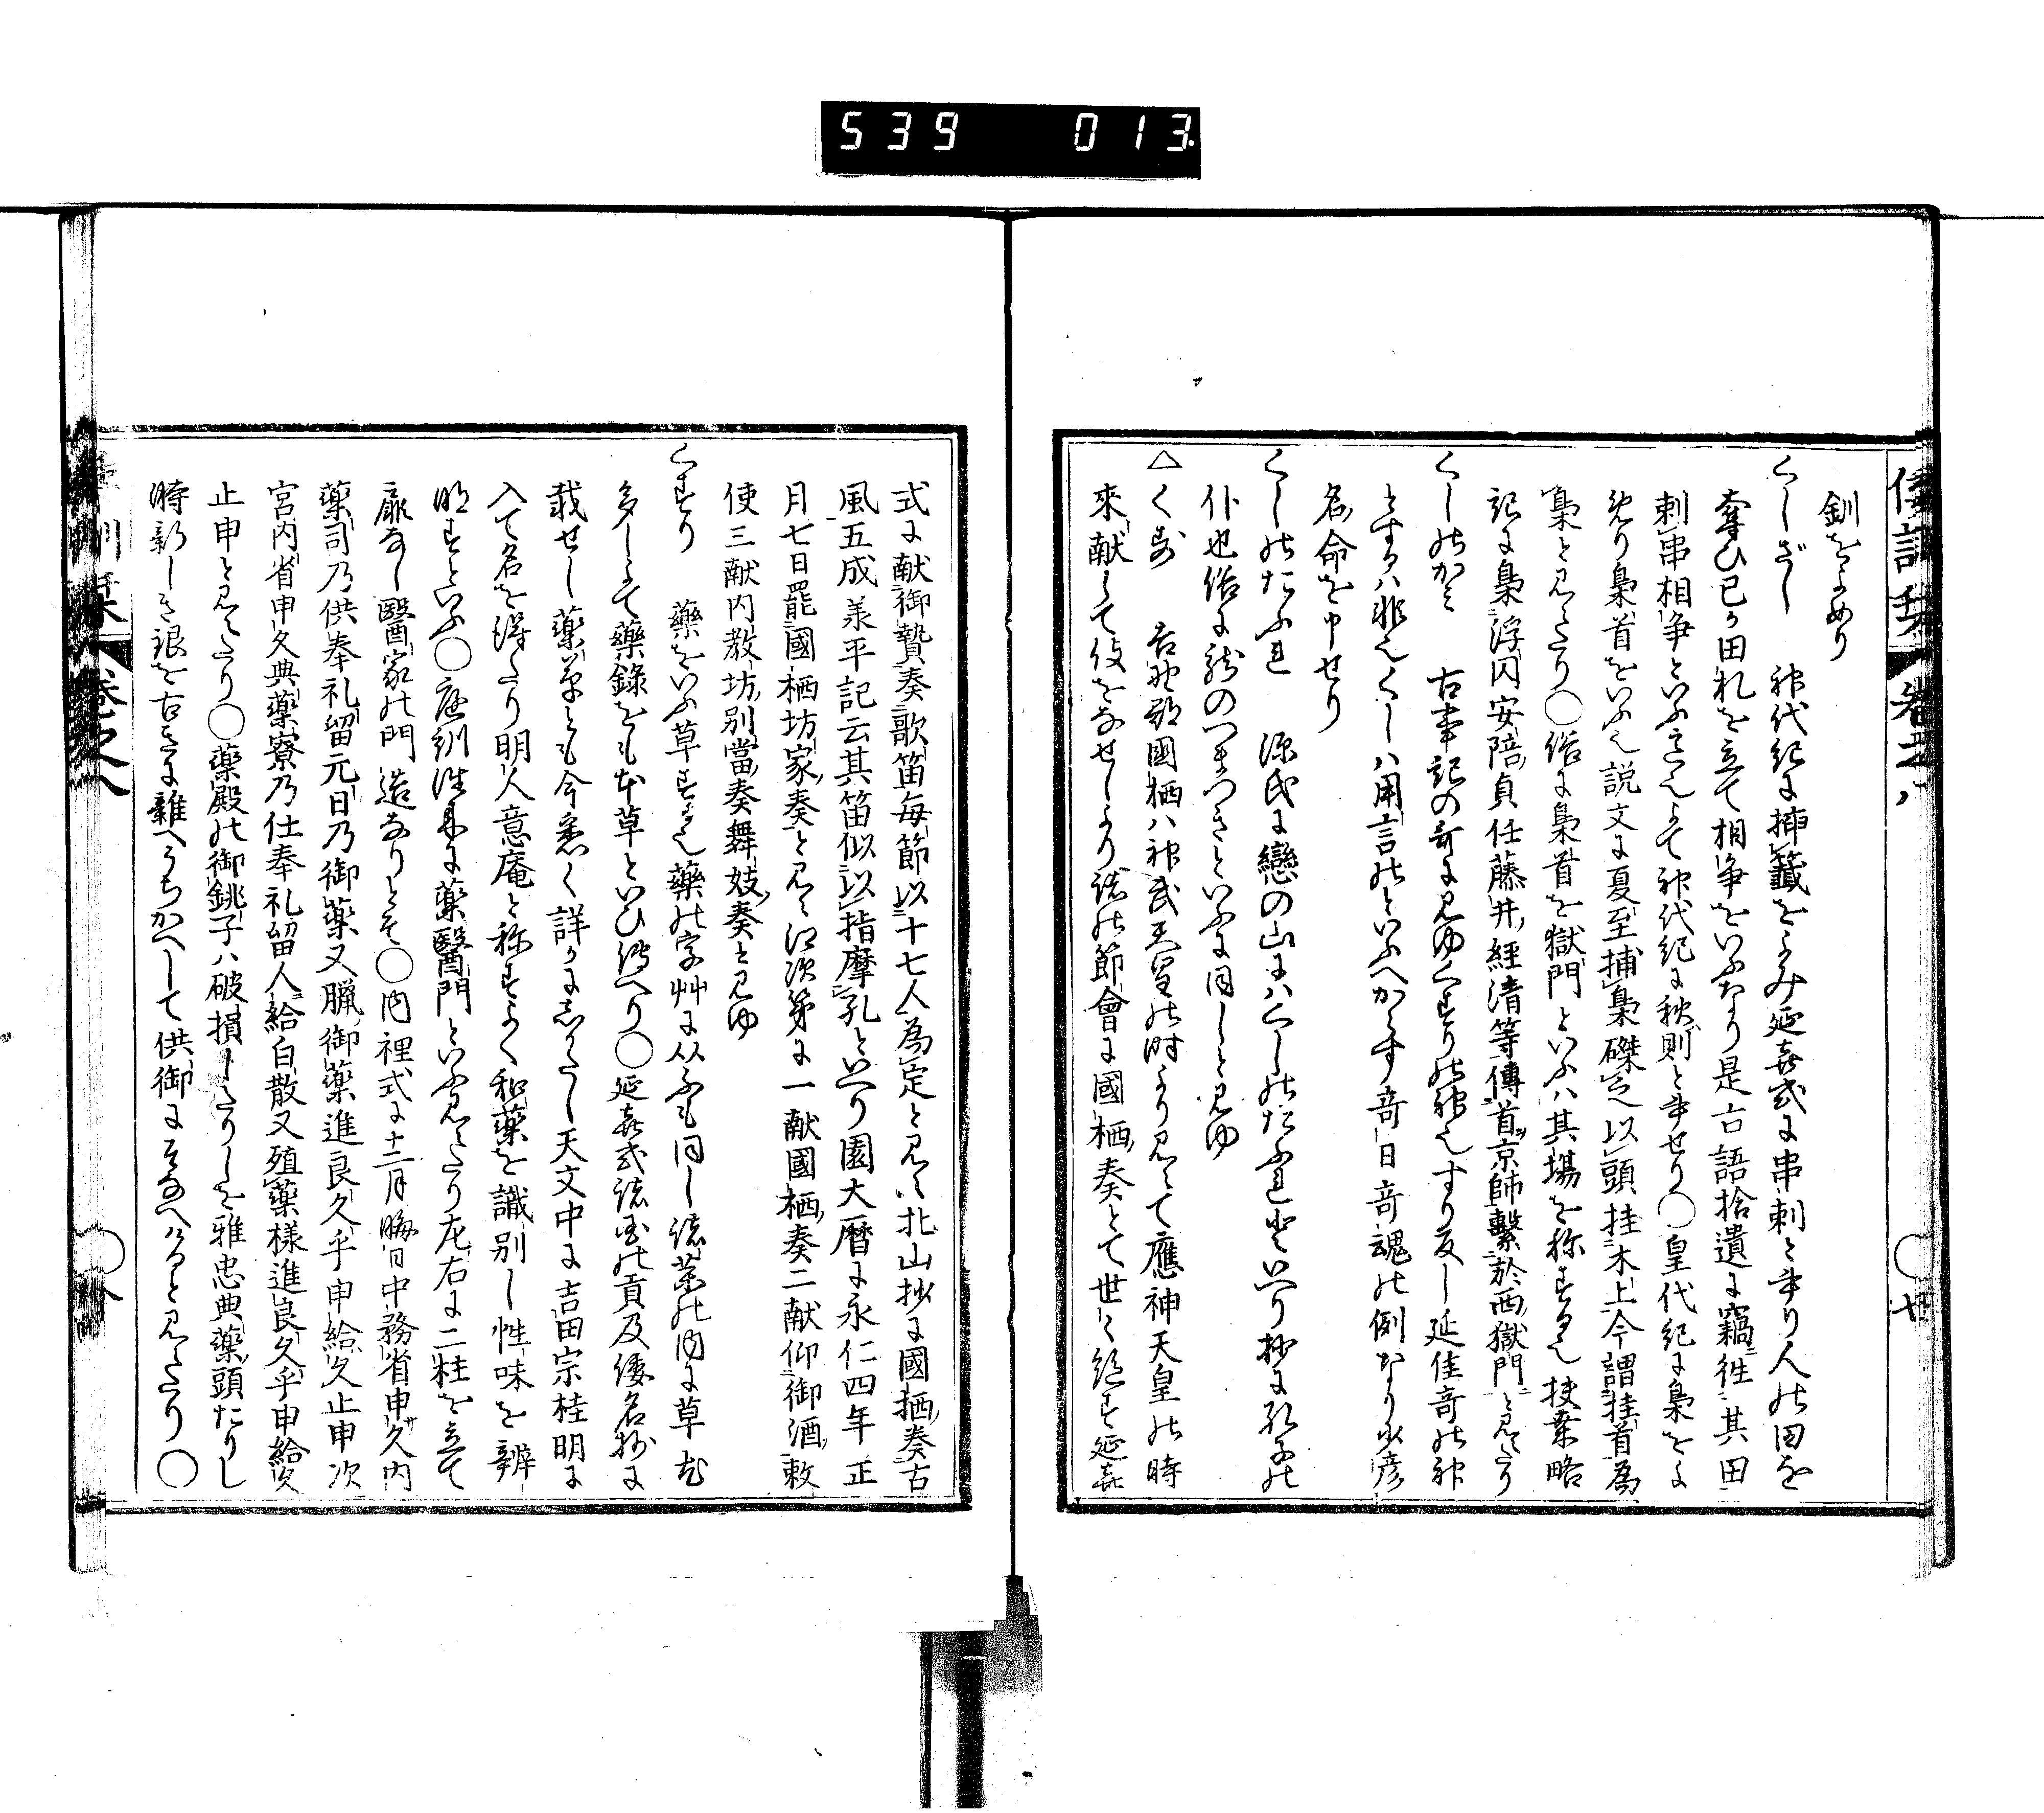 539 013
倭訓栞 卷之八 ○ 七
釧をよめり
くしざし 神代紀に挿籤をよみ延喜式に串刺と書り人の田を
奪ひ己か田札を立て相争をいふなり是古語拾遺に竊往其田
刺串相争といふこれ也さて神代紀に秋則と書せり○皇代紀に梟をよ
めり梟首をいふ也説文に夏至捕梟磔之以頭挂木上今謂挂首為
梟と見えたり○俗に梟首を獄門といふハ其場を称する也扶桑略
記に梟浮囚安陪貞任藤井經清等傳首京師繫於西獄門と見えたり
くしのかみ 古事記の哥に見ゆくすりの神也すり反し延佳奇の神
とするハ非也くしハ用言のといふへからす奇日奇魂の例なり少彦
名命を申せり
くしのたふれ 源氏に戀の山にハくしのたふれといへり抄に孔子の
仆也俗に龍のつまつきといふに同しと見ゆ
△くず 吉野郡國栖ハ神武天皇の時より見えて應神天皇の時
來献して伎をなせしより諸の節會に國栖奏とて世々絶す延喜
式に献御贄奏歌笛每節以十七人為定と見え北山抄に國栖奏古
風五成義平記云其笛似以指摩孔といへり園大暦に永仁四年正
月七日罷國栖坊家奏と見え江次第に一献國栖奏二献仰御酒敕
使三献内教坊別當奏舞妓奏と見ゆ
くすり 藥をいふ草すき也藥の字艸に从ふも同し諸薬の内に草尤
多しよて藥錄をも本草といひ傳へり○延喜式諸国の貢及倭名抄に
載せし藥草とも今悉く詳かに志かたし天文中に吉田宗桂明に
入て名を得たり明人意庵と称すよく和藥を識別し性味を辨
明すといふ○庭訓往來に薬醫門といふ見えたり左右に二柱を立て
扉なし醫家の門造なりとそ○内裡式に十二月晦日中務省申久内
藥司乃供奉礼留元日乃御藥又臘御藥進良久乎申給久止申次
宮内省申久典藥寮乃仕奉礼留人給白散又殖藥樣進良久乎申給久
止申と見えたり○藥殿の御銚子ハ破損したりしを雅忠典藥頭たりし
時新しき銀を古きに雜へうちかへして供御にそなへけると見えたり○
倭訓栞 卷之八 ○ 八